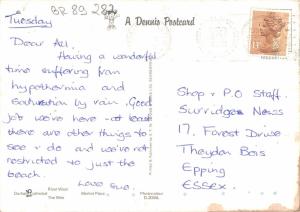 BR 89 282
Tuesday
A Dennis Postcard
Dear All.
Having a wonderful
time suffering from
hypothermia and
saturation by rain. Good
job we're here - at least
there are other things to
see & do and we're not
restricted to just the
beach.
Love Sue.
Shop & P.O Staff.
Surridges News
17, Forest Drive
Theydon Bois
Epping
ESSEX.
River Wear
Market Place
The Weir
Photocolour